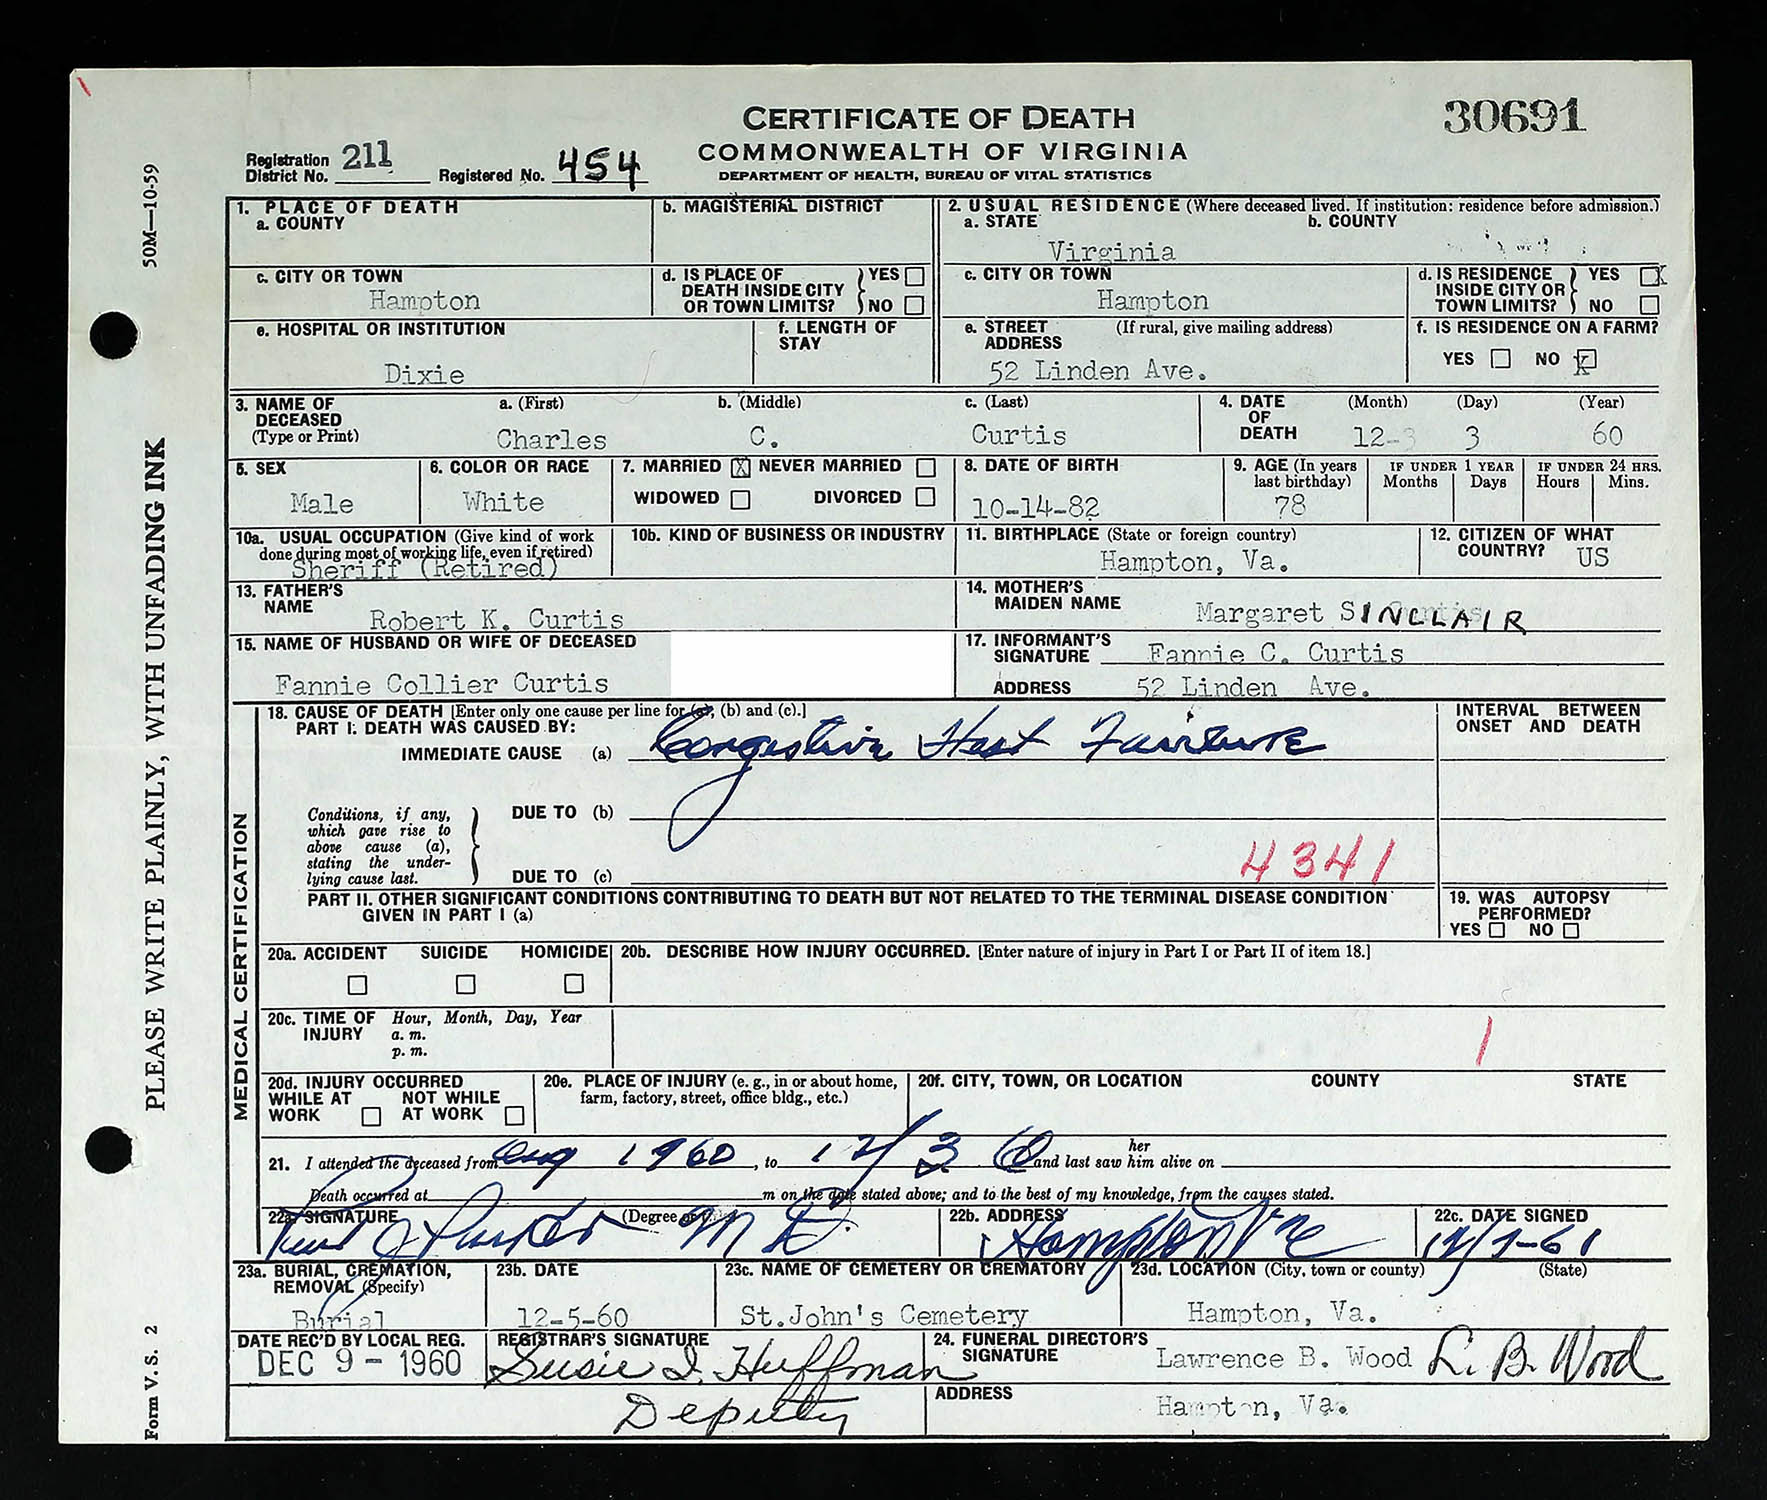 CERTIFICATE OF DEATH
30691
COMMONWEALTH OF VIRGINIA
DEPARTMENT OF HEALTH, BUREAU OF VITAL STATISTICS
Registration District No. 211 Registered No. 454
50M—10-59
PLEASE WRITE PLAINLY, WITH UNFADING INK
Form V. S. 2
1. PLACE OF DEATH
a. COUNTY
b. MAGISTERIAL DISTRICT
2. USUAL RESIDENCE (Where deceased lived. If institution: residence before admission.)
a. STATE
Virginia
b. COUNTY
c. CITY OR TOWN
Hampton
d. IS PLACE OF DEATH INSIDE CITY OR TOWN LIMITS? YES NO
c. CITY OR TOWN
Hampton
d. IS RESIDENCE INSIDE CITY OR TOWN LIMITS? YES X NO
e. HOSPITAL OR INSTITUTION
Dixie
f. LENGTH OF STAY
e. STREET ADDRESS (If rural, give mailing address)
52 Linden Ave.
f. IS RESIDENCE ON A FARM?
YES NO X
3. NAME OF DECEASED (Type or Print)
a. (First) b. (Middle) c. (Last)
Charles C. Curtis
4. DATE OF DEATH (Month) (Day) (Year)
12-3 3 60
5. SEX
Male
6. COLOR OR RACE
White
7. MARRIED X NEVER MARRIED
WIDOWED DIVORCED
8. DATE OF BIRTH
10-14-82
9. AGE (In years last birthday)
78
IF UNDER 1 YEAR
Months Days
IF UNDER 24 HRS.
Hours Mins.
10a. USUAL OCCUPATION (Give kind of work done during most of working life, even if retired)
Sheriff (Retired)
10b. KIND OF BUSINESS OR INDUSTRY
11. BIRTHPLACE (State or foreign country)
Hampton, Va.
12. CITIZEN OF WHAT COUNTRY? US
13. FATHER'S NAME
Robert K. Curtis
14. MOTHER'S MAIDEN NAME
Margaret SINCLAIR
15. NAME OF HUSBAND OR WIFE OF DECEASED
Fannie Collier Curtis
17. INFORMANT'S SIGNATURE Fannie C. Curtis
ADDRESS 52 Linden Ave.
MEDICAL CERTIFICATION
18. CAUSE OF DEATH [Enter only one cause per line for (a), (b) and (c).]
PART I. DEATH WAS CAUSED BY:
IMMEDIATE CAUSE (a) Congestive Heart Failure
INTERVAL BETWEEN ONSET AND DEATH
Conditions, if any, which gave rise to above cause (a), stating the underlying cause last.
DUE TO (b)
DUE TO (c)
4341
PART II. OTHER SIGNIFICANT CONDITIONS CONTRIBUTING TO DEATH BUT NOT RELATED TO THE TERMINAL DISEASE CONDITION GIVEN IN PART I (a)
19. WAS AUTOPSY PERFORMED?
YES NO
20a. ACCIDENT SUICIDE HOMICIDE
20b. DESCRIBE HOW INJURY OCCURRED. [Enter nature of injury in Part I or Part II of item 18.]
20c. TIME OF INJURY Hour, Month, Day, Year
a. m.
p. m.
1
20d. INJURY OCCURRED
WHILE AT WORK NOT WHILE AT WORK
20e. PLACE OF INJURY (e. g., in or about home, farm, factory, street, office bldg., etc.)
20f. CITY, TOWN, OR LOCATION COUNTY STATE
21. I attended the deceased from Aug 1960, to 12/3 60 and last saw her him alive on
Death occurred at m on the date stated above; and to the best of my knowledge, from the causes stated.
22a. SIGNATURE (Degree or title)
M D.
22b. ADDRESS
Hampton Va
22c. DATE SIGNED
12/7-61
23a. BURIAL, CREMATION, REMOVAL (Specify)
Burial
23b. DATE
12-5-60
23c. NAME OF CEMETERY OR CREMATORY
St.John's Cemetery
23d. LOCATION (City, town or county) (State)
Hampton, Va.
DATE REC'D BY LOCAL REG.
DEC 9 - 1960
REGISTRAR'S SIGNATURE
Susie I. Huffman
Deputy
24. FUNERAL DIRECTOR'S SIGNATURE Lawrence B. Wood L. B. Wood
ADDRESS
Hampton, Va.